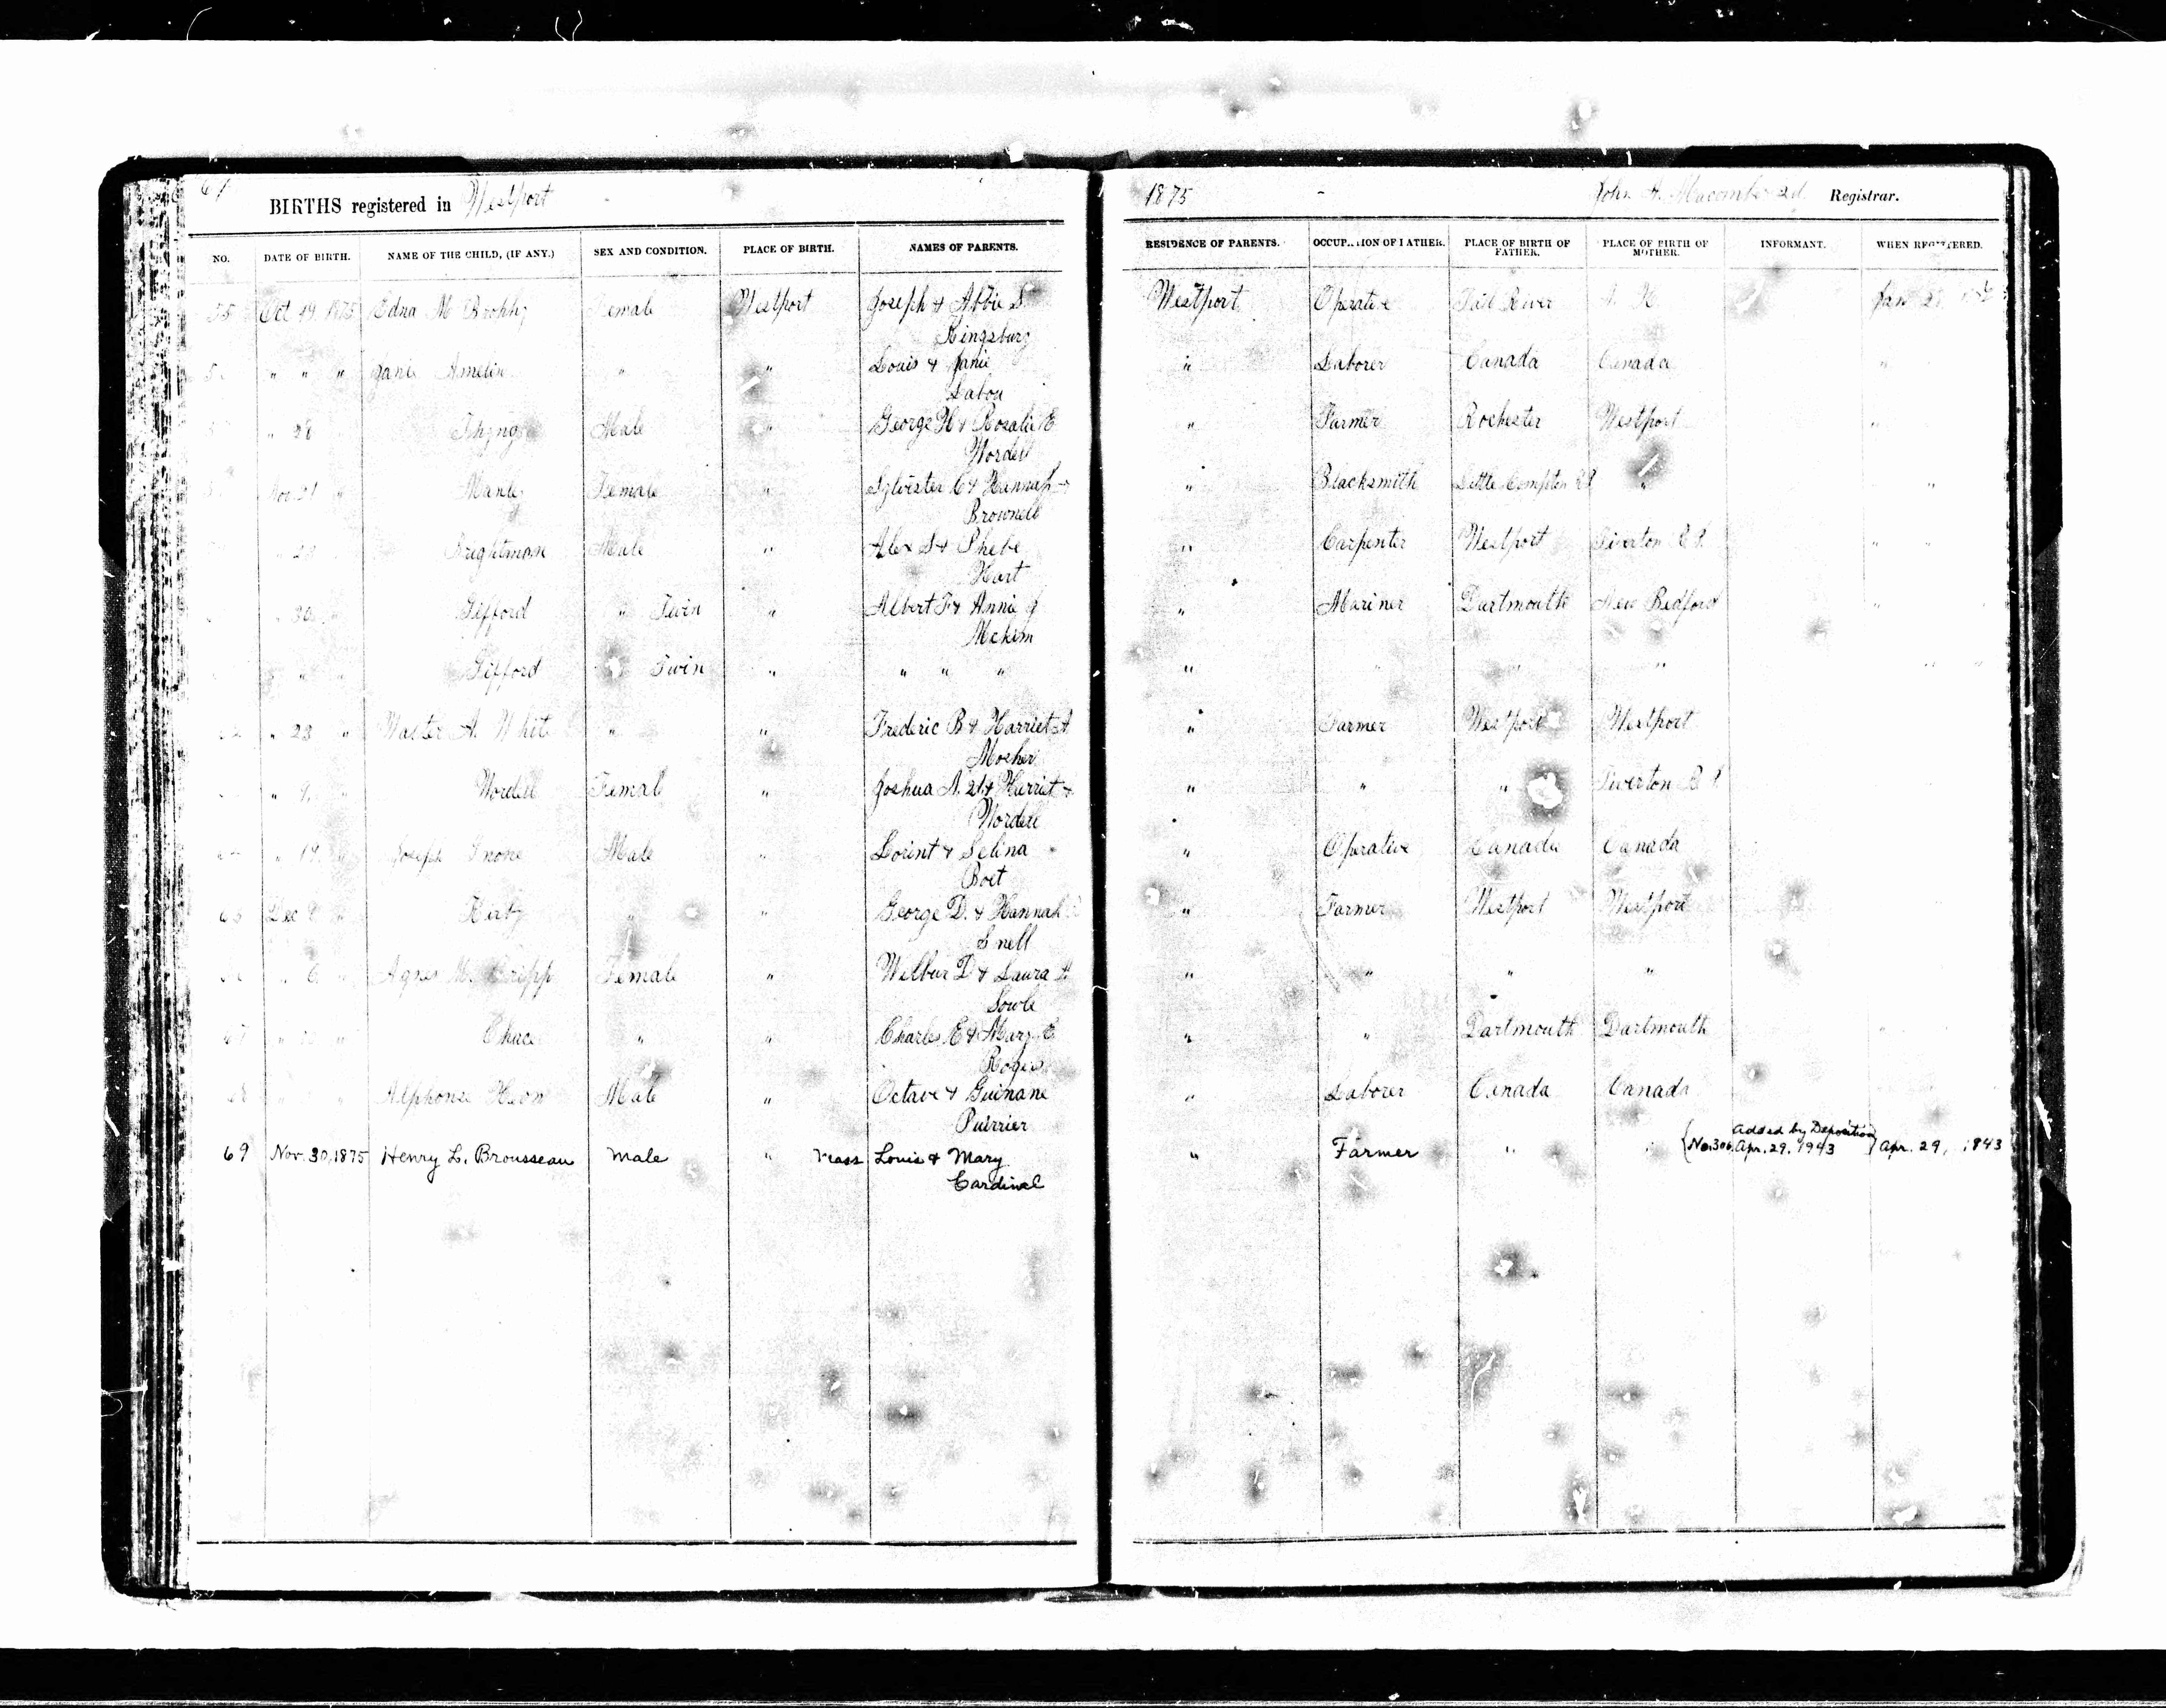 BIRTHS registered in Westport
1875 John A. Macomber 2d Registrar.
NO. DATE OF BIRTH. NAME OF THE CHILD, (IF ANY.) SEX AND CONDITION. PLACE OF BIRTH. NAMES OF PARENTS. RESIDENCE OF PARENTS. OCCUPATION OF FATHER. PLACE OF BIRTH OF FATHER. PLACE OF BIRTH OF MOTHER. INFORMANT. WHEN REGISTERED.
55 Oct 19 1875 Edna M Brophy Female Westport Joseph & Abbie S Westport Operative Fall River N. H. Jan 21
Kingsbury
" " " Janie Amelin " " Louis & Janie " Laborer Canada Canada "
Labou
" 28 Thyng Male " George H & Rosalie E " Farmer Rochester Westport "
Wordell
Nov 21 " Manly Female " Sylvester C & Hannah " Blacksmith Little Compton R I " "
Brownell
" 23 Brightman Male " Alex S & Phebe " Carpenter Westport Tiverton R. I. " "
Hart
" 30 " Gifford " Twin " Albert F & Annie J " Mariner Dartmouth New Bedford "
Mckim
" " Gifford Twin " " " " " " " " " "
" 23 " Walter A. White " " Frederic B & Harriet A " Farmer Westport Westport
Mosher
" 9. " Wordell Female " Joshua A. 2d & Harriet " " " Tiverton R I
Wordell
" 14. " Joseph Male " Lorint & Selina " Operative Canada Canada
Boet
65 Dec " Kirby " " George D. & Hannah " Farmer Westport Westport
Snell
" 6. " Agnes M. Tripp Female " Wilbur D & Laura A " " " "
Sowle
67 " " Chace " " Charles E & Mary E " " Dartmouth Dartmouth "
Rogers
68 " " Alphonse Heon Male " Octave & Guinane " Laborer Canada Canada
Puirrier
69 Nov. 30, 1875 Henry L. Brousseau Male " Mass Louis & Mary " Farmer " " { Added by Deposition
No. 306, Apr. 29, 1943 } Apr. 29, 1843
Cardinal